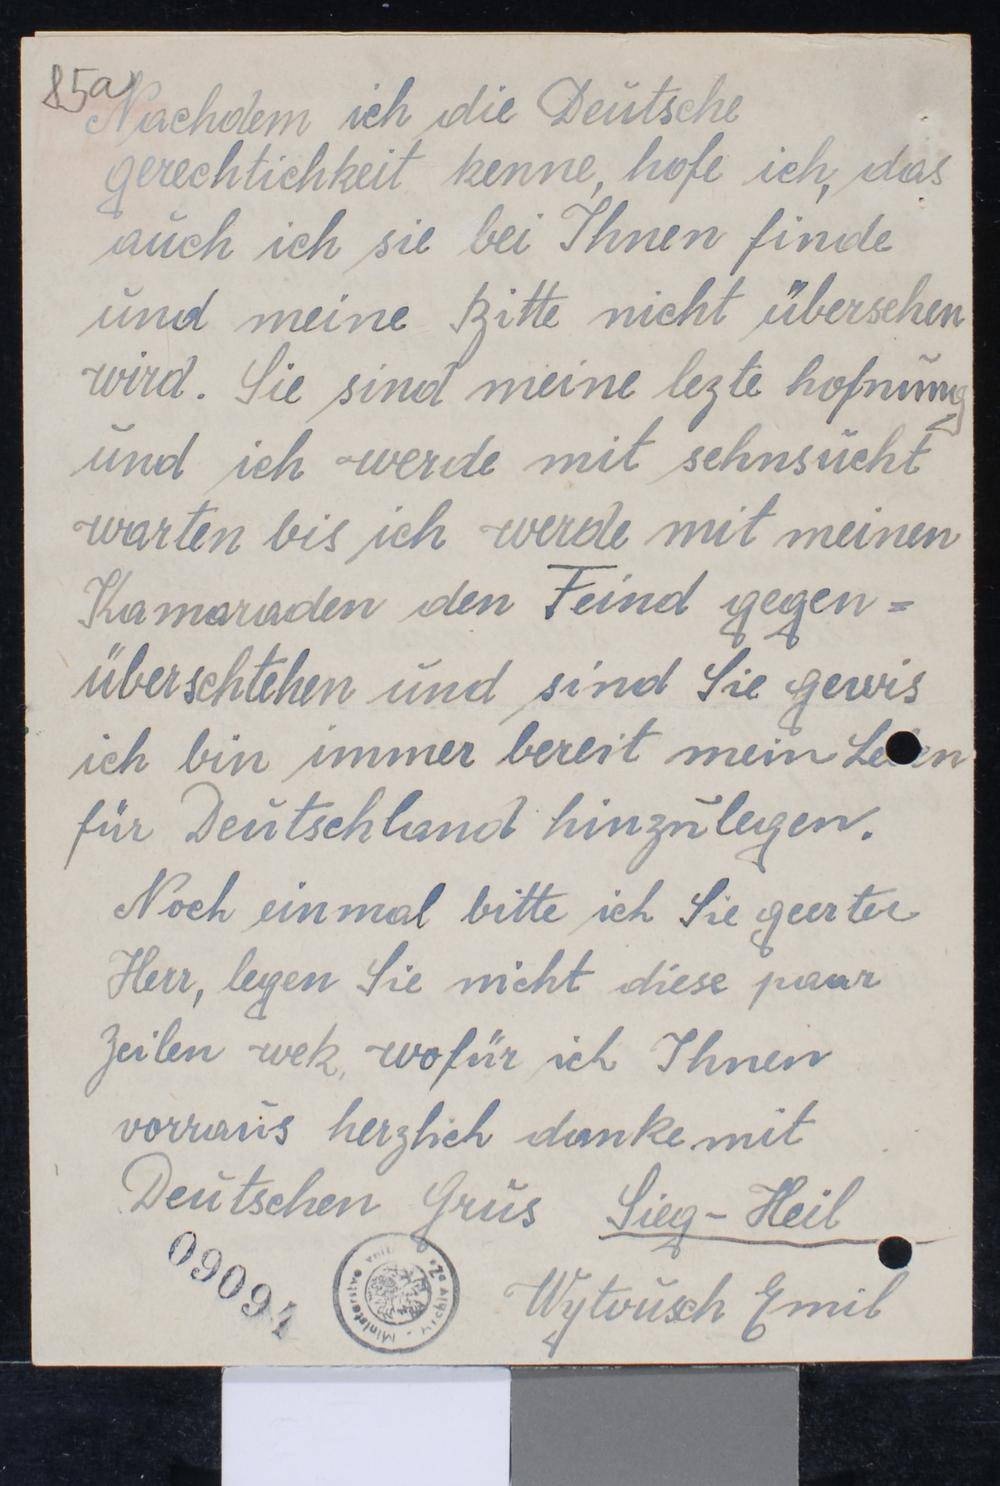 85a
Nachdem ich die Deutsche
gerechtichkeit kenne, hofe ich, das
auch ich sie bei Ihnen finde
und meine Bitte nicht übersehen
wird. Sie sind meine lezte hofnung
und ich werde mit sehnsucht
warten bis ich werde mit meinen
Kamaraden den Feind gegen=
überschtehen und sind Sie gewis
ich bin immer bereit mein Leben
für Deutschland hinzulegen.
Noch einmal bitte ich Sie geerter
Herr, legen Sie nicht diese paar
Zeilen wek, wofür ich Ihnen
vorraus herzlich danke mit
Deutschen Grus Sieg-Heil
09094
Wytousch Emil